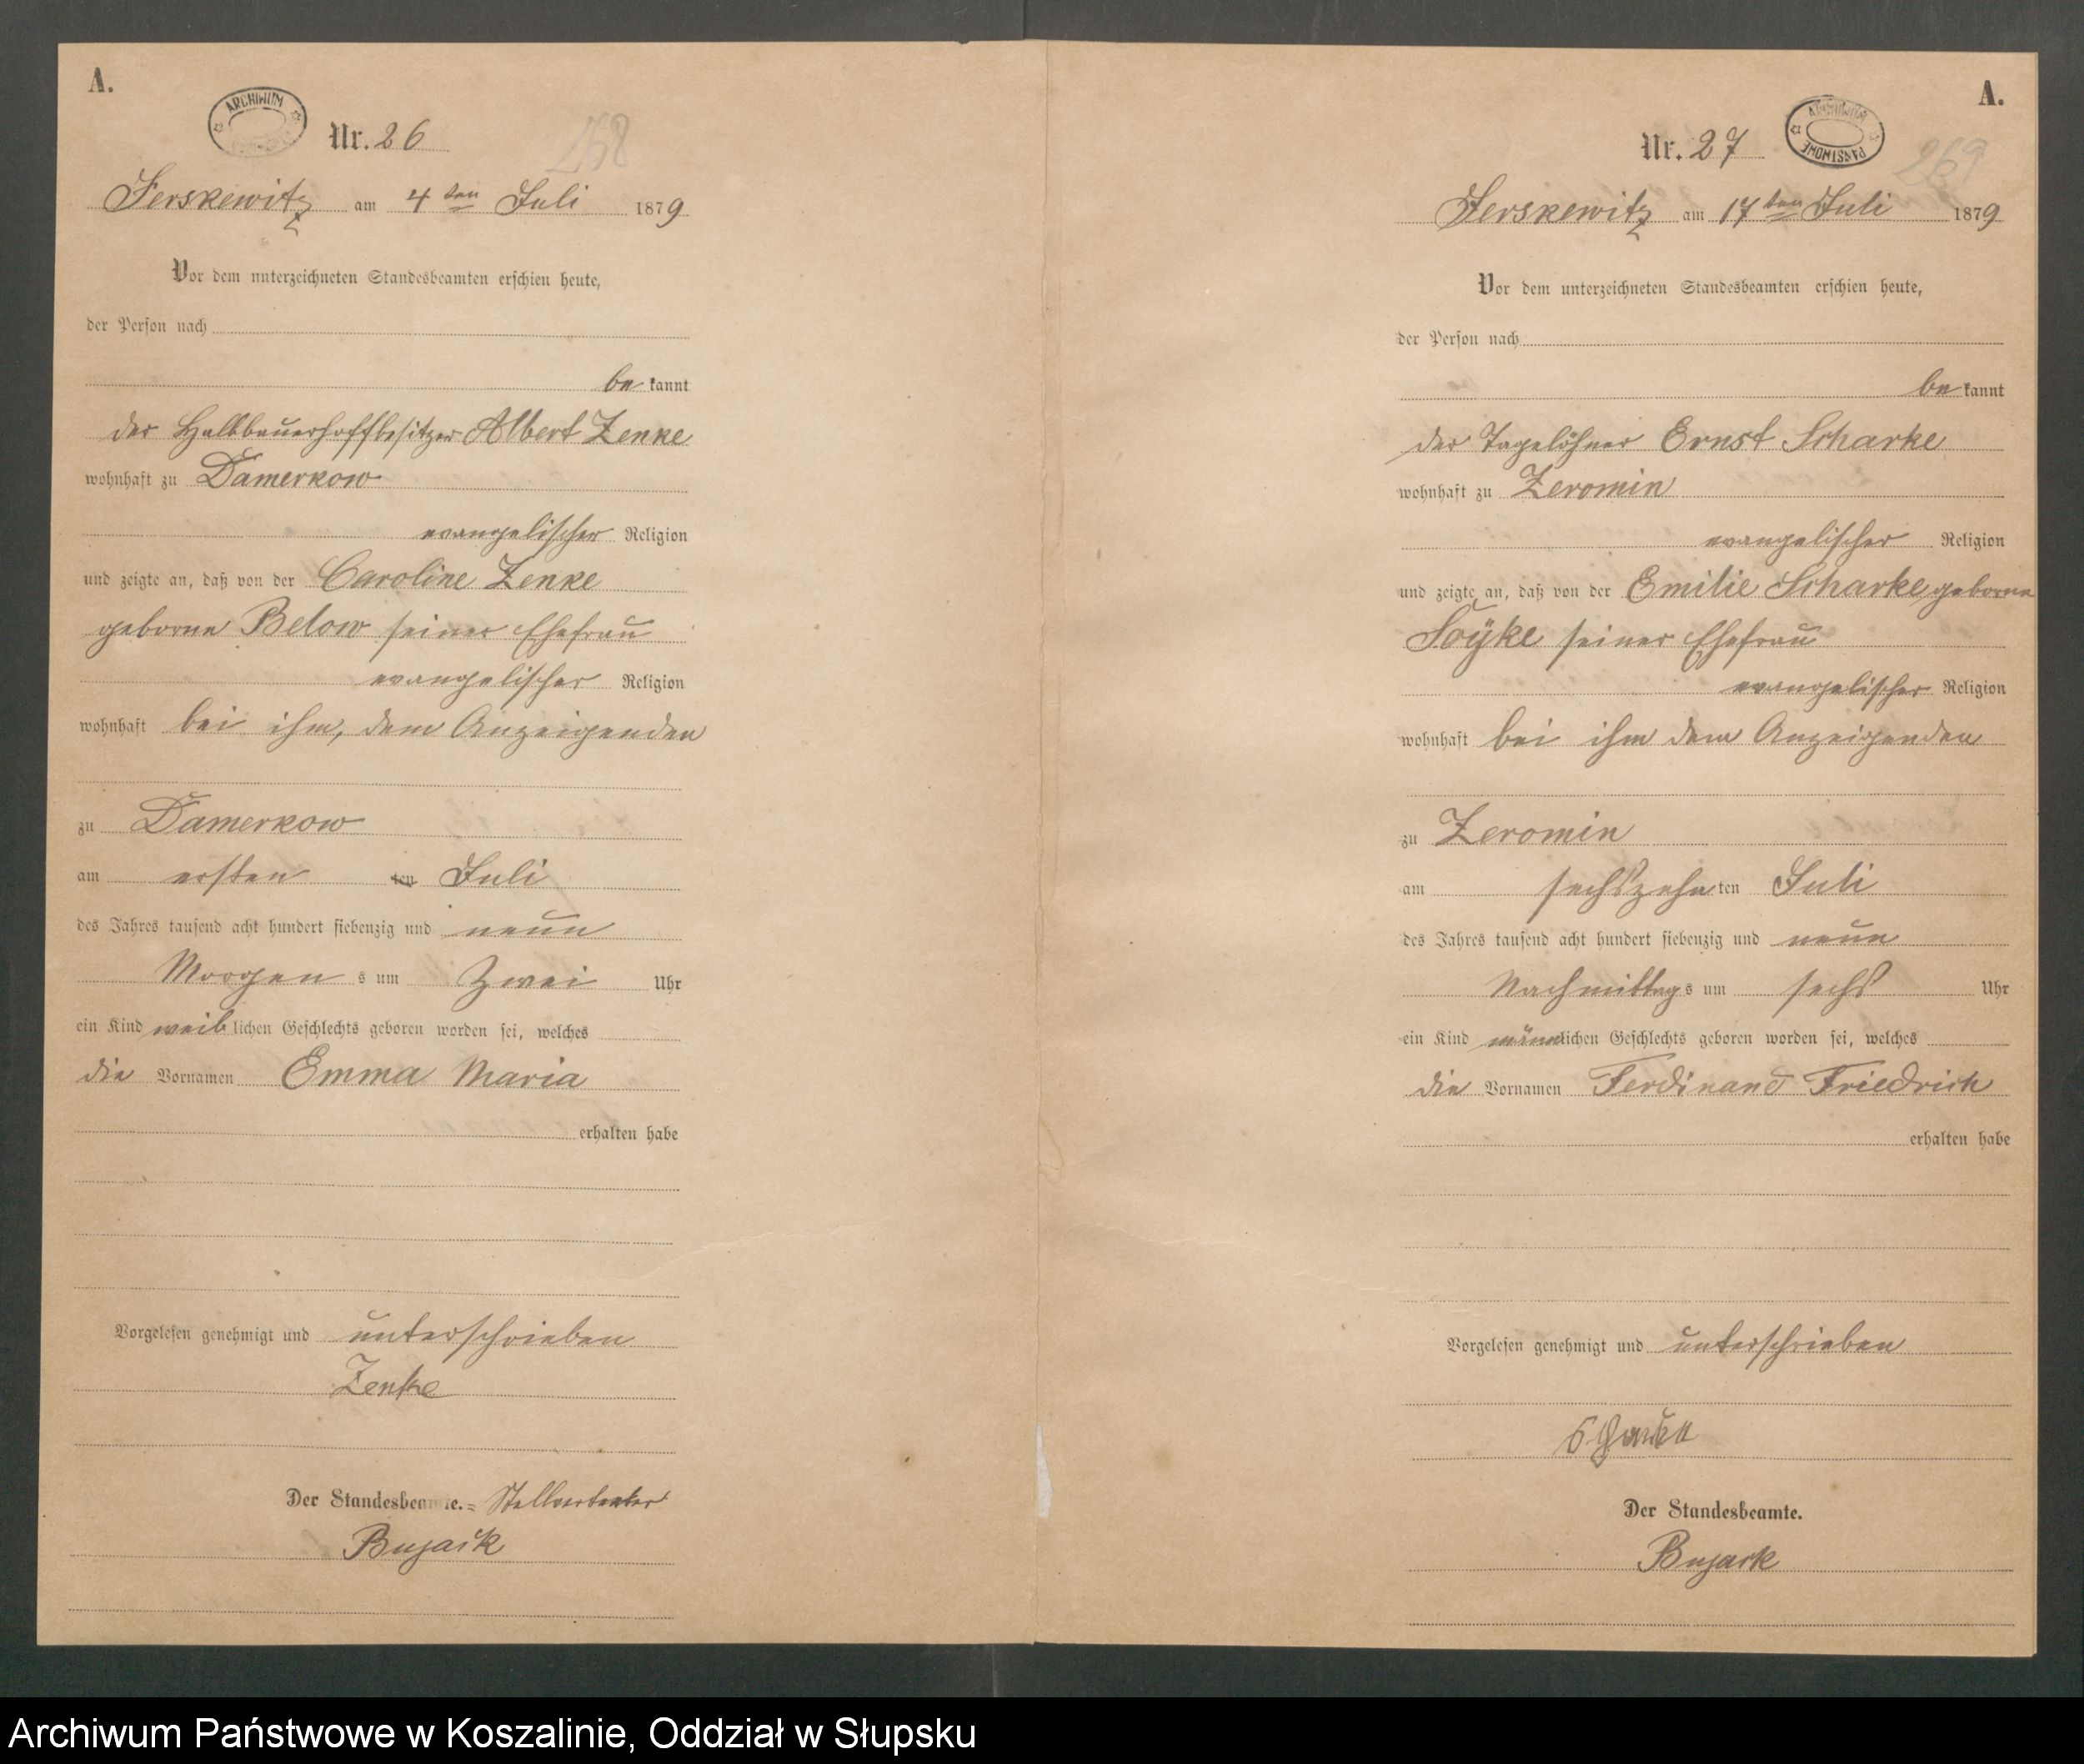 A.
ARCHIWUM
Nr. 26
268
Jerskewitz am 4ten Juli 1879
Vor dem unterzeichneten Standesbeamten erschien heute,
der Person nach
bekannt
der Halbbauerhoffbesitzer Albert Zenke
wohnhaft zu Damerkow
evangelischer Religion
und zeigte an, daß von der Caroline Zenke
geborne Below seiner Ehefrau
evangelischer Religion
wohnhaft bei ihm, dem Anzeigenden
zu Damerkow
am ersten ten Juli
des Jahres tausend acht hundert siebenzig und neun
Morgens um Zwei Uhr
ein Kind weiblichen Geschlechts geboren worden sei, welches
die Vornamen Emma Maria
erhalten habe
Vorgelesen genehmigt und unterschrieben
Zenke
Der Standesbeamte. = Stellvertreter
Bujack
A.
ARCHIWUM PAŃSTWOWE
Nr. 27
269
Jerskewitz am 17ten Juli 1879
Vor dem unterzeichneten Standesbeamten erschien heute,
der Person nach
bekannt
der Tagelöhner Ernst Scharke
wohnhaft zu Zeromin
evangelischer Religion
und zeigte an, daß von der Emilie Scharke, geborne
Soÿke seiner Ehefrau
evangelischer Religion
wohnhaft bei ihm dem Anzeigenden
zu Zeromin
am sechszehnten Juli
des Jahres tausend acht hundert siebenzig und neun
Nachmittags um sechs Uhr
ein Kind männlichen Geschlechts geboren worden sei, welches
die Vornamen Ferdinand Friedrich
erhalten habe
Vorgelesen genehmigt und unterschrieben
Der Standesbeamte.
Bujack
Archiwum Państwowe w Koszalinie, Oddział w Słupsku